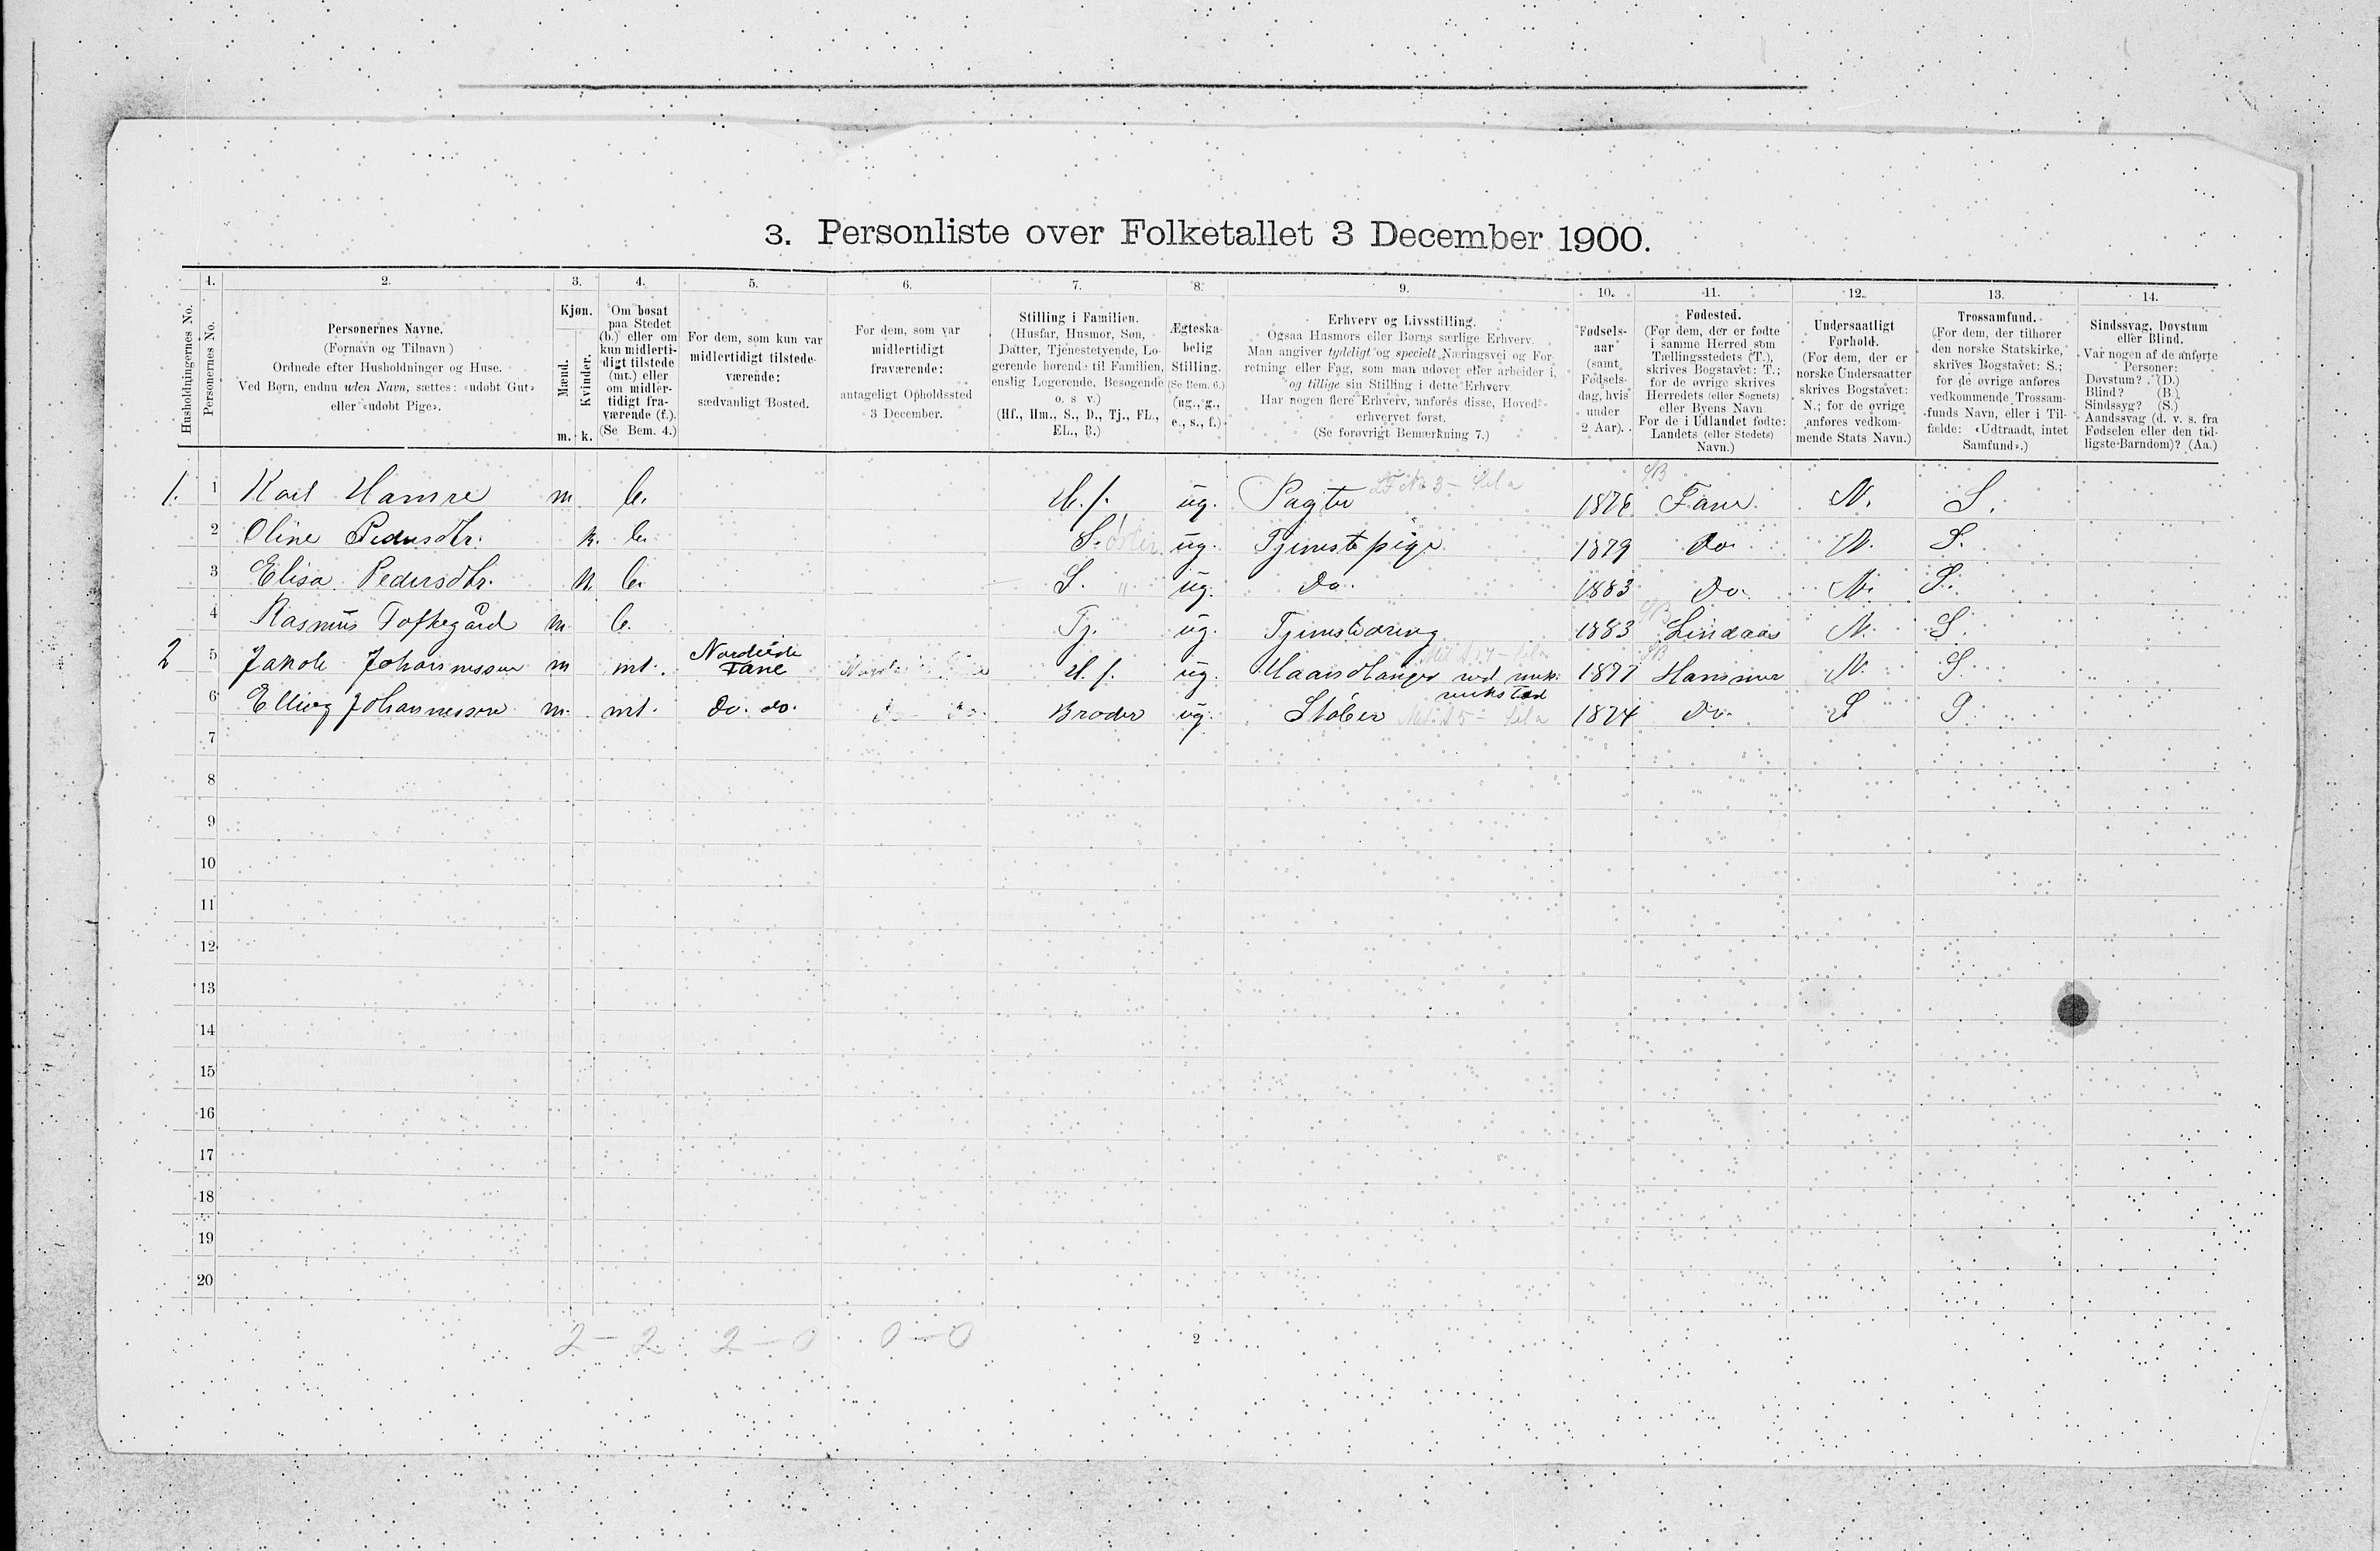 3. Personliste over Folketallet 3 December 1900.
1. 2. 3. 4. 5. 6. 7. 8. 9. 10. 11. 12. 13. 14.
Husholdningernes No.
Personernes No.
Personernes Navne.
(Fornavn og Tilnavn)
Ordnede efter Husholdninger og Huse.
Ved Børn, endnu uden Navn, sættes: «udøbt Gut»
eller «udøbt Pige».
Kjøn.
Mænd.
Kvinder.
m. k.
Om bosat
paa Stedet
(b.) eller om
kun midlerti-
digt tilstede
(mt.) eller
om midler-
tidigt fra-
værende (f.).
(Se Bem. 4.)
For dem, som kun var
midlertidigt tilstede-
værende:
sædvanligt Bosted.
For dem, som var
midlertidigt
fraværende:
antageligt Opholdssted
3 December.
Stilling i Familien.
(Husfar, Husmor, Søn,
Datter, Tjenestetyende, Lo-
gerende hørende til Familien,
enslig Logerende, Besøgende
o. s v.)
(Hf., Hm., S., D., Tj., FL.,
EL., B.)
Ægteska-
belig
Stilling.
(Se Bem. 6.)
(ug., g.,
e., s., f.)
Erhverv og Livsstilling.
Ogsaa Husmors eller Børns særlige Erhverv.
Man angiver tydeligt og specielt Næringsvei og For-
retning eller Fag, som man udøver eller arbeider i,
og tillige sin Stilling i dette Erhverv
Har nogen flere Erhverv, anføres disse, Hoved-
erhvervet først.
(Se forøvrigt Bemærkning 7.)
Fødsels-
aar
(samt
Fødsels-
dag, hvis
under
2 Aar).
Fødested.
(For dem, der er fødte
i samme Herred som
Tællingsstedets (T.),
skrives Bogstavet: T.;
for de øvrige skrives
Herredets (eller Sognets)
eller Byens Navn.
For de i Udlandet fødte:
Landets (eller Stedets)
Navn.)
Undersaatligt
Forhold.
(For dem, der er
norske Undersaatter
skrives Bogstavet:
N.; for de øvrige
anføres vedkom-
mende Stats Navn.)
Trossamfund.
(For dem, der tilhører
den norske Statskirke,
skrives Bogstavet: S.;
for de øvrige anføres
vedkommende Trossam-
funds Navn, eller i Til-
fælde: «Udtraadt, intet
Samfund».)
Sindssvag, Døvstum
eller Blind.
Var nogen af de anførte
Personer:
Døvstum? (D.)
Blind? (B.)
Sindssyg? (S.)
Aandssvag (d. v. s. fra
Fødselen eller den tid-
ligste Barndom)? (Aa.)
1. 1 Karl Hamre m b. H.f. ug. Pagter 1876 Fane N. S.
2 Oline Pedersdtr. k. b. S.øster ug. Tjenestepige 1879 Do. N. S.
3 Elisa Pedersdtr. k. b. S. " ug. Do. 1883 Do. N. S.
4 Rasmus Toftegård m b. Tj. ug. Tjenestedreng 1883 Lindaas N. S.
2 5 Jakob Johannessen m mt. Nordeide Fane H.f. ug. Haandlanger ved mek. 1877 Hammer N. S.
verksted
6 Elling Johannessen m. mt. Do. do. Do. Do. Broder ug. Støber 1874 Do. S S
7
8
9
10
11
12
13
14
15
16
17
18
19
20
2 – 2 2 – 0 0 – 0
2